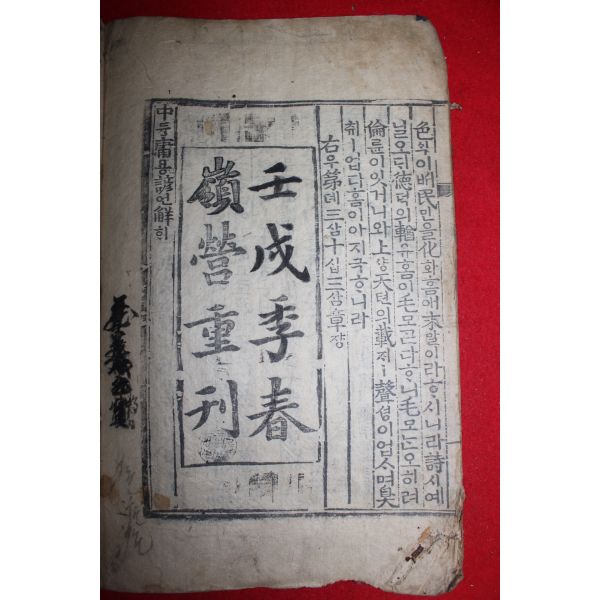 色ᄉᆡᆨ이 ᄡᅥ 民민을 化화홈애 末말이라 ᄒᆞ시니라 詩시예
닐오ᄃᆡ 德덕의 輶유홈이 毛모 ᄀᆞᆮ다 ᄒᆞ니 毛모ᄂᆞᆫ 오히려
倫륜이 잇거니와 上샹天텬의 載ᄌᆡ ㅣ 聲셩이 업ᄉᆞ며 臭
취ㅣ 업다 홈이아 지극ᄒᆞ니라
右우ᄂᆞᆫ 第뎨三삼十십三삼章쟝
壬戌季春
嶺營重刊
中듕庸용諺언解ᄒᆡ